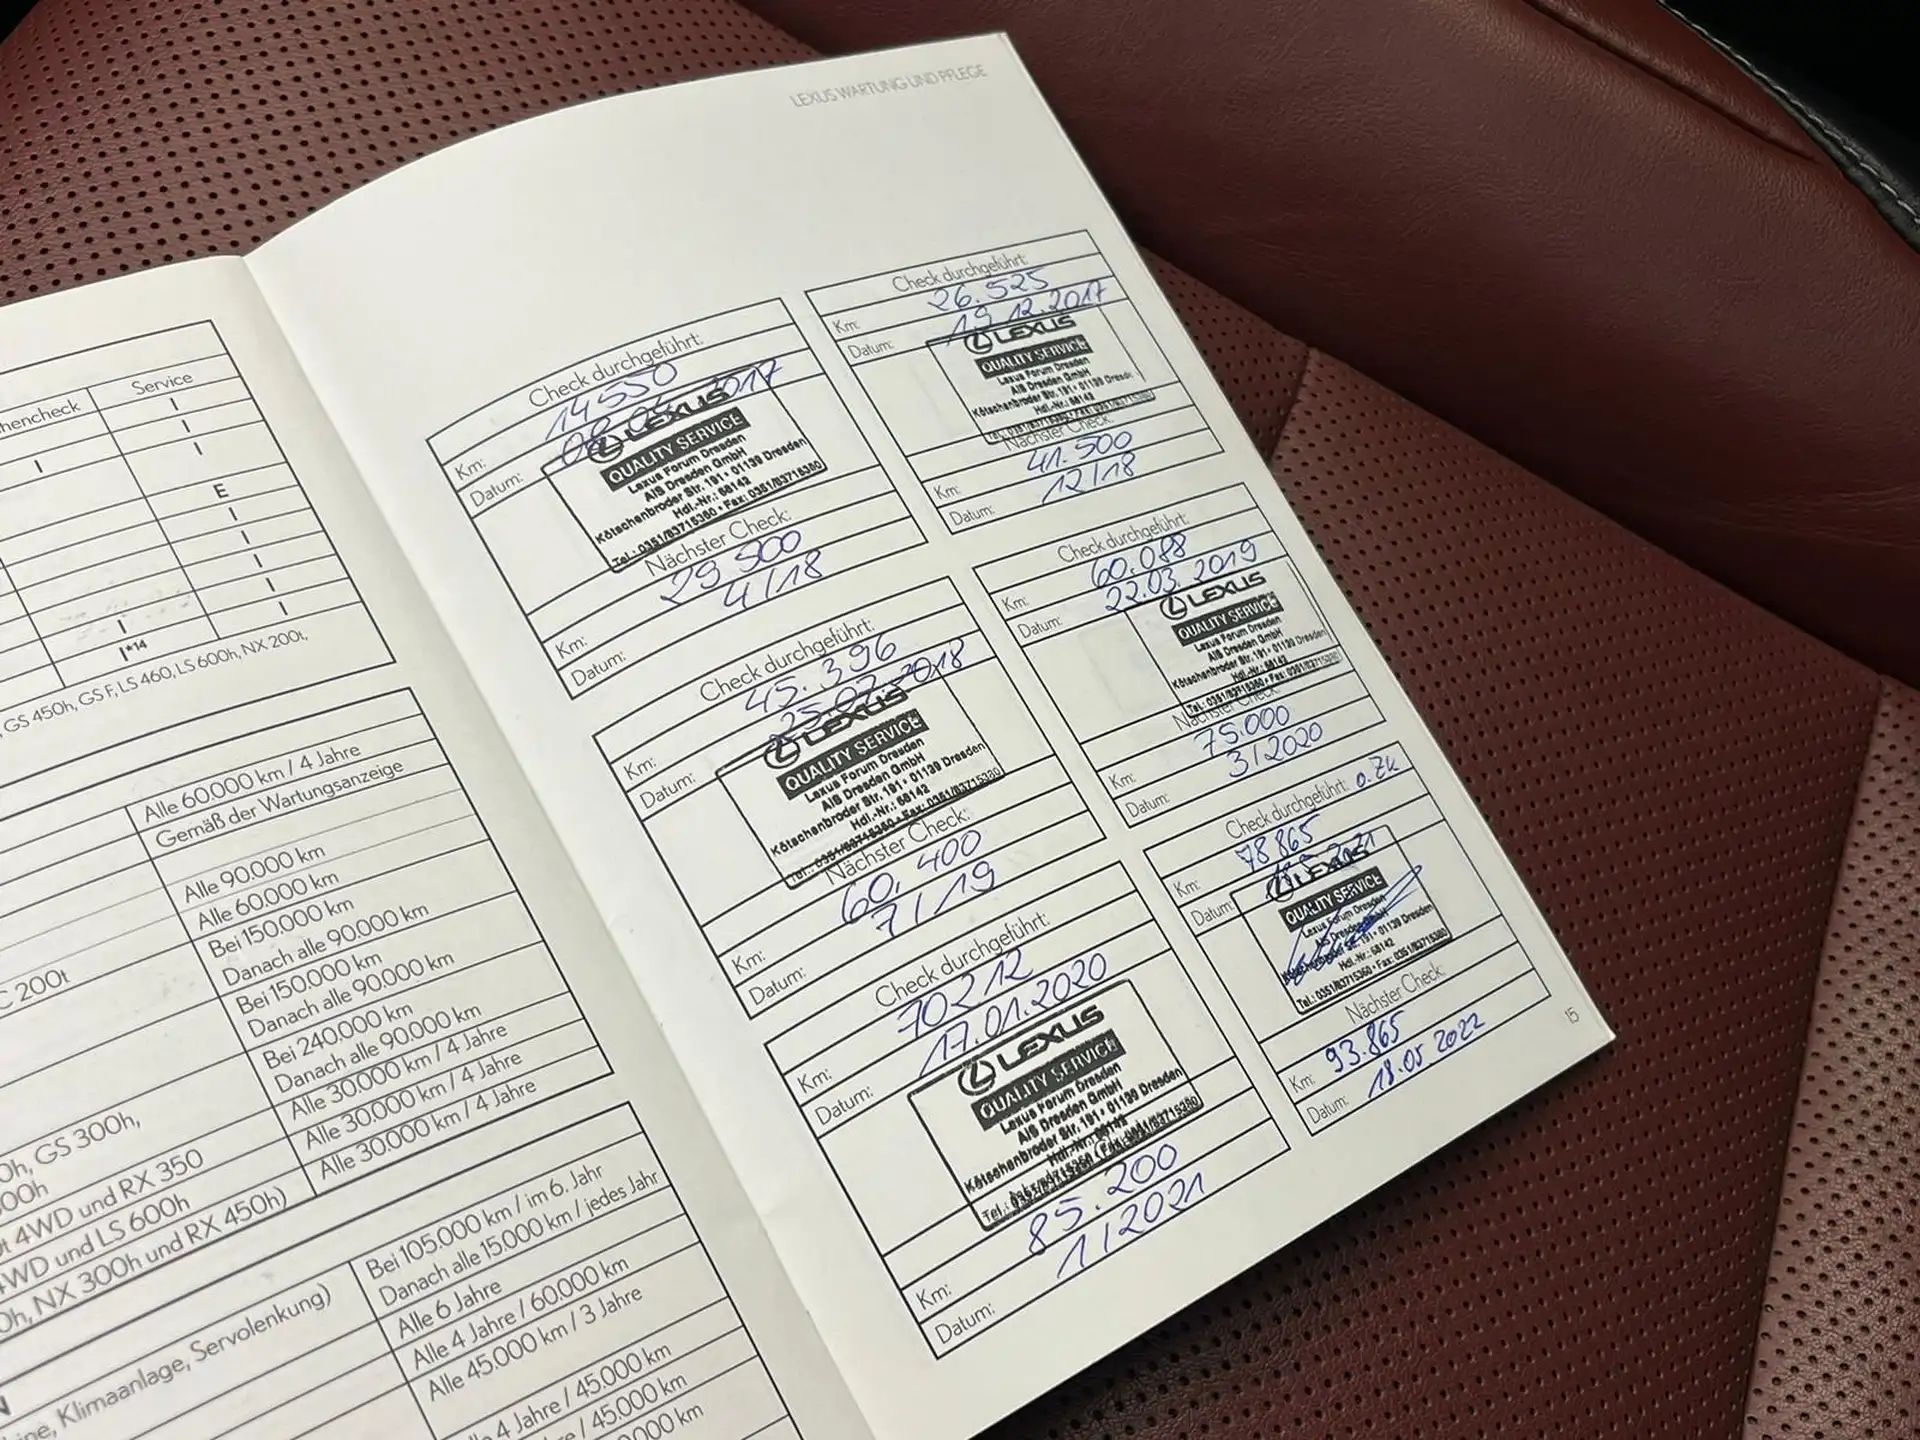 LEXUS WARTUNG UND PFLEGE
Service
I
I
I
I
E
I
I
I
I
I
I*14
GS 450h, GS F, LS 460, LS 600h, NX 200t,
Alle 60.000 km / 4 Jahre
Gemäß der Wartungsanzeige
Alle 90.000 km
Alle 60.000 km
Bei 150.000 km
Danach alle 90.000 km
C 200t
Bei 150.000 km
Danach alle 90.000 km
Bei 240.000 km
Danach alle 90.000 km
GS 300h,
Alle 30.000 km / 4 Jahre
4WD und RX 350
Alle 30.000 km / 4 Jahre
4WD und LS 600h
Alle 30.000 km / 4 Jahre
NX 300h und RX 450h)
Bei 105.000 km / im 6. Jahr
Danach alle 15.000 km / jedes Jahr
Alle 6 Jahre
Klimaanlage, Servolenkung)
Alle 4 Jahre / 60.000 km
Alle 45.000 km / 3 Jahre
4 Jahre / 45.000 km
/ 45.000 km
Check durchgeführt:
Km: 14 550
Datum: 2017
LEXUS
QUALITY SERVICE
Lexus Forum Dresden
AIS Dresden GmbH
Kötschenbroder Str. 191 • 01139 Dresden
Hdl.-Nr.: 68142
Tel.: 0351/83715360 • Fax: 0351/83715380
Nächster Check:
Km: 29 500
Datum: 4/18
Check durchgeführt:
Km: 26.525
Datum: 19.12.2017
LEXUS
QUALITY SERVICE
Lexus Forum Dresden
AIS Dresden GmbH
Kötschenbroder Str. 191 • 01139 Dresden
Hdl.-Nr.: 68142
Nächster Check:
Km: 41.500
Datum: 12/18
Check durchgeführt:
Km: 45.396
Datum: 25.07.2018
LEXUS
QUALITY SERVICE
Lexus Forum Dresden
AIS Dresden GmbH
Kötschenbroder Str. 191 • 01139 Dresden
Hdl.-Nr.: 68142
Tel.: 0351/83715360 • Fax: 0351/83715380
Nächster Check:
Km: 60.400
Datum: 7/19
Check durchgeführt:
Km: 60.088
Datum: 22.03.2019
LEXUS
QUALITY SERVICE
Lexus Forum Dresden
AIS Dresden GmbH
Kötschenbroder Str. 191 • 01139 Dresden
Hdl.-Nr.: 68142
Tel.: 0351/83715360 • Fax: 0351/83715380
Nächster Check:
Km: 75.000
Datum: 3/2020
Check durchgeführt:
Km: 70212
Datum: 17.01.2020
LEXUS
QUALITY SERVICE
Lexus Forum Dresden
AIS Dresden GmbH
Kötschenbroder Str. 191 • 01139 Dresden
Km: 85.200
Datum: 1/2021
Check durchgeführt: o. Zk
Km: 78865
Datum:
LEXUS
QUALITY SERVICE
Lexus Forum Dresden
AIS Dresden GmbH
Kötschenbroder Str. 191 • 01139 Dresden
Hdl.-Nr.: 68142
Tel.: 0351/83715360 • Fax: 0351/83715380
Nächster Check:
Km: 93.865
Datum: 18.05 2022
15